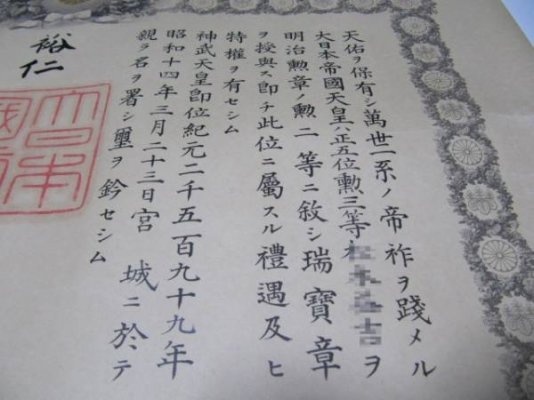 天佑ヲ保有シ萬世一系ノ帝祚ヲ踐メル
大日本帝國天皇ハ正五位勳三等ヲ
明治勳章ノ勳二等ニ敍シ瑞寶章
ヲ授與ス即チ此位ニ屬スル禮遇及ヒ
特權ヲ有セシム
神武天皇即位紀元二千五百九十九年
昭和十四年三月二十三日宮城ニ於テ
親ラ名ヲ署シ璽ヲ鈐セシム
裕仁
大日本
國